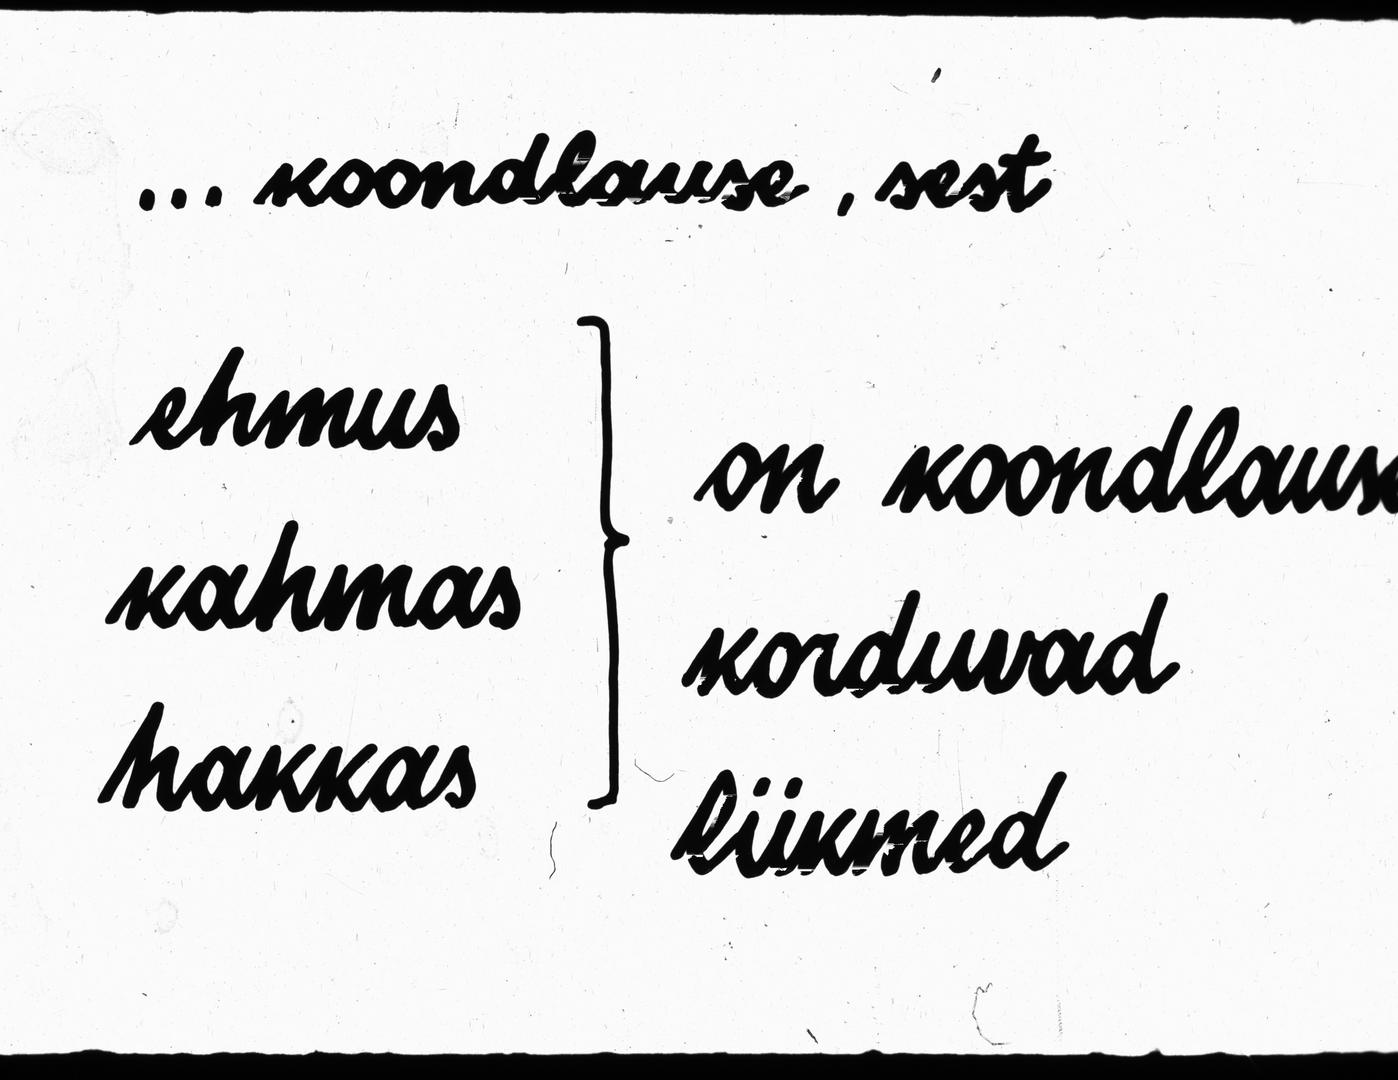 ... koondlause, sest
ehmus
kahmas
hakkas
on koondlause
korduvad
liikmed